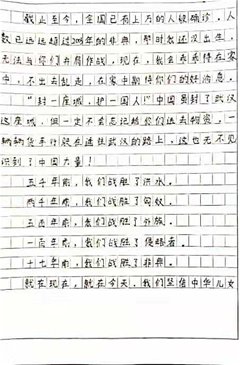 截止至今，全国已有上万的人被确诊，人
数已远远超过2003年的非典，那时我还没出生，
无法与你们并肩作战，现在，我会乖乖待在家
中，不出去乱走，在家中期待你们的好消息。
“封一座城，护一国人”中国虽封了武汉
这座城，但一定不会忘记给你们送去物资，一
辆辆货车行驶在通往武汉的路上，这也无不见
识到了中国力量！
五千年前，我们战胜了洪水。
两千年前，我们战胜了匈奴。
五百年前，我们战胜了外族。
一百年前，我们战胜了侵略者。
十七年前，我们战胜了非典。
就在现在，就在今天，我们坚信中华儿女